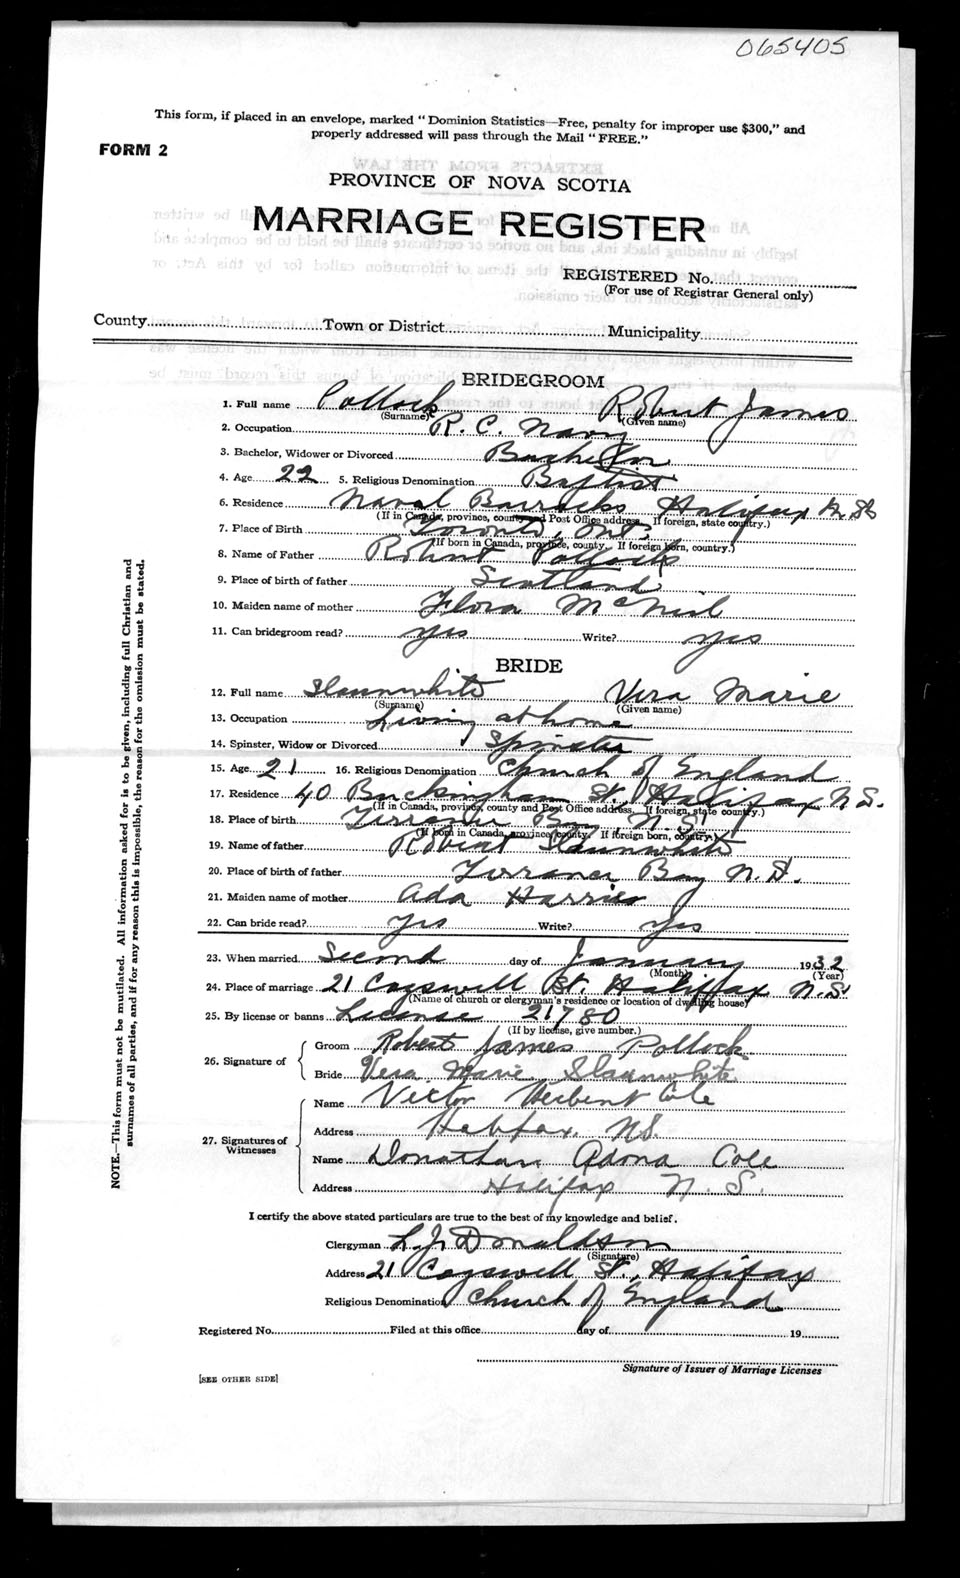 065405
This form, if placed in an envelope, marked "Dominion Statistics—Free, penalty for improper use $300," and
properly addressed will pass through the Mail "FREE."
FORM 2
PROVINCE OF NOVA SCOTIA
MARRIAGE REGISTER
REGISTERED No.
(For use of Registrar General only)
County Town or District Municipality
BRIDEGROOM
1. Full name Pollock Robert James
(Surname) (Given name)
2. Occupation R. C. Navy
3. Bachelor, Widower or Divorced Bachelor
4. Age 22 5. Religious Denomination Baptist
6. Residence Naval Barracks Halifax N.S.
(If in Canada, province, county and Post Office address. If foreign, state country.)
7. Place of Birth Toronto, Ont.
(If born in Canada, province, county. If foreign born, country.)
8. Name of Father Robert Pollock
9. Place of birth of father Scotland
10. Maiden name of mother Flora McNeil
11. Can bridegroom read? yes Write? yes
BRIDE
12. Full name Slaunwhite Vera Marie
(Surname) (Given name)
13. Occupation Living at home
14. Spinster, Widow or Divorced Spinster
15. Age 21 16. Religious Denomination Church of England
17. Residence 40 Buckingham St. Halifax N.S.
(If in Canada, province, county and Post Office address. If foreign, state country.)
18. Place of birth Terrance Bay N.S.
(If born in Canada, province, county. If foreign born, country.)
19. Name of father Robert Slaunwhite
20. Place of birth of father Terrance Bay N.S.
21. Maiden name of mother Ada Harries
22. Can bride read? yes Write? yes
23. When married Second day of January 1932
(Month) (Year)
24. Place of marriage 21 Cogswell St. Halifax N.S.
(Name of church or clergyman's residence or location of dwelling house)
25. By license or banns License 21780
(If by license, give number.)
26. Signature of
Groom Robert James Pollock
Bride Vera Marie Slaunwhite
27. Signatures of Witnesses
Name Victor Herbert Cole
Address Halifax, N.S.
Name Donathan Adona Cole
Address Halifax N. S.
I certify the above stated particulars are true to the best of my knowledge and belief.
Clergyman L. J. Donaldson
(Signature)
Address 21 Cogswell St., Halifax
Religious Denomination Church of England
Registered No. Filed at this office day of 19
Signature of Issuer of Marriage Licenses
[SEE OTHER SIDE]
NOTE.—This form must not be mutilated. All information asked for is to be given, including full Christian and
surnames of all parties, and if for any reason this is impossible, the reason for the omission must be stated.